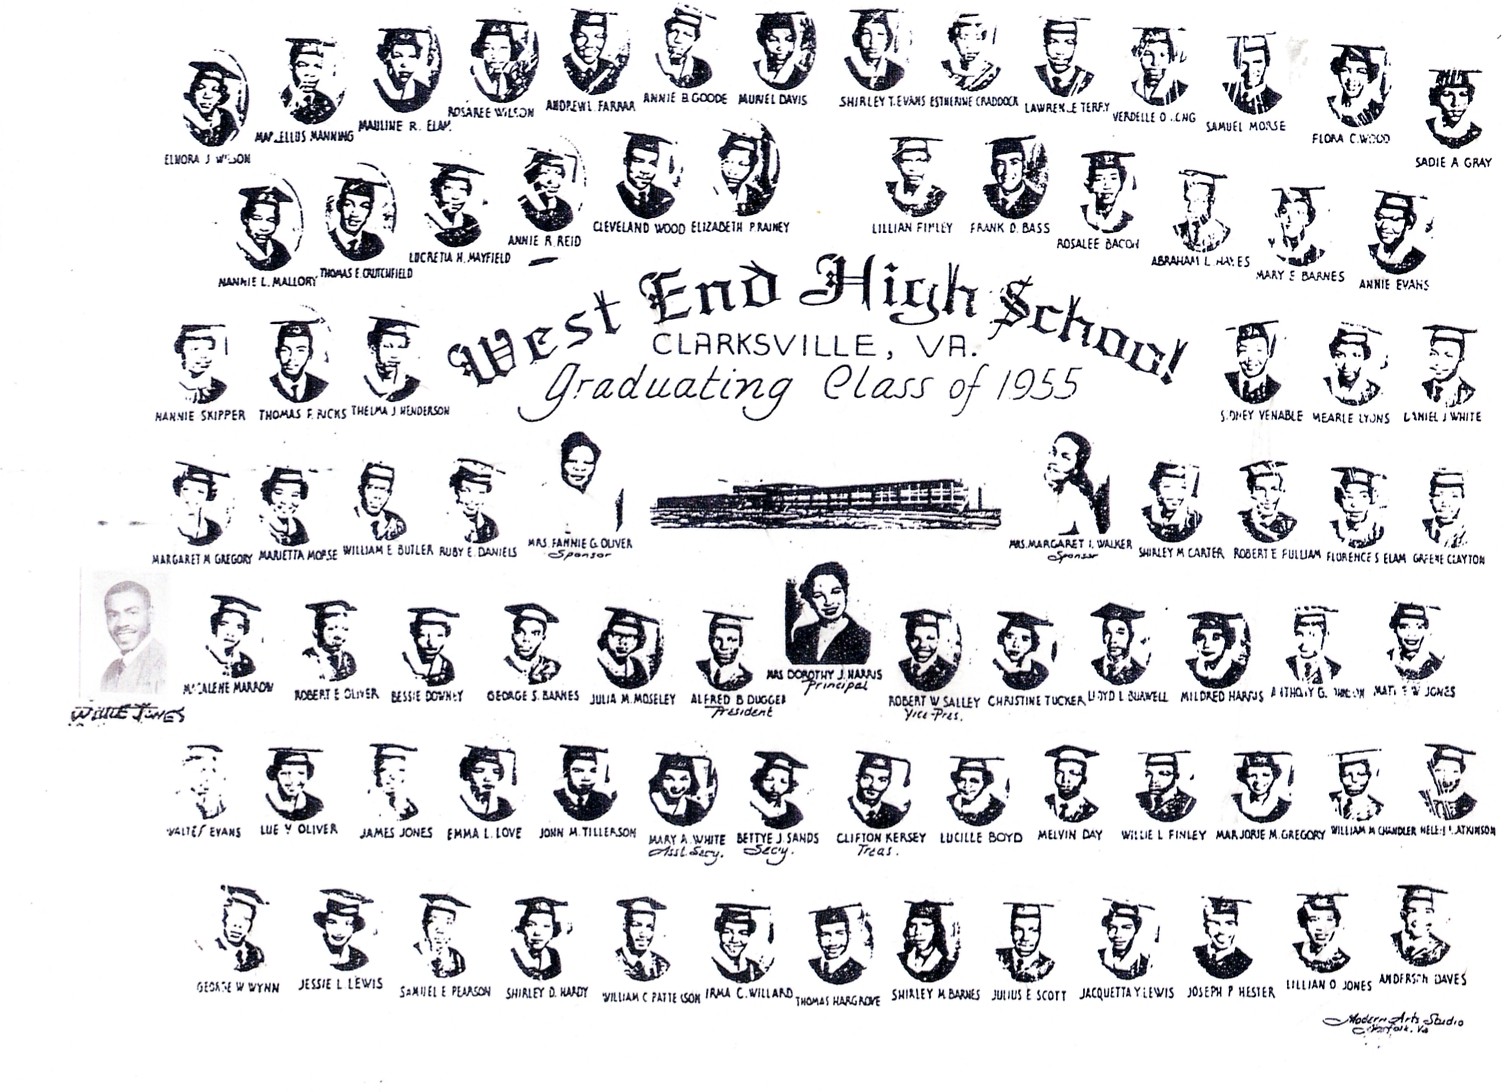 ELNORA J
MANNING
MAULINE R.
ROSAREE WILSON
ANDREW L FARRAR
ANNIE B GOODE
MURIEL DAVIS
SHIRLEY T. EVANS
ESTHERINE CRADDOCK
LAWRENCE TERRY
VERDELLE
SAMUEL MORSE
FLORA C. WOOD
SADIE A GRAY
NANNIE L. MALLORY
THOMAS E. CRUTCHFIELD
LUCRETIA H. MAYFIELD
ANNIE R REID
CLEVELAND WOOD
ELIZABETH P RAINEY
LILLIAN FINLEY
FRANK D. BASS
ROSALEE BACON
ABRAHAM L HAYES
MARY E BARNES
ANNIE EVANS
West End High School
CLARKSVILLE, VA.
Graduating Class of 1955
NANNIE SKIPPER
THOMAS F. RICKS
THELMA J HENDERSON
SIDNEY VENABLE
MEARLE LYONS
DANIEL J WHITE
MARGARET M GREGORY
MARIETTA MORSE
WILLIAM E BUTLER
RUBY E. DANIELS
MRS. FANNIE G. OLIVER
Sponsor
MRS. MARGARET I. WALKER
Sponsor
SHIRLEY M CARTER
ROBERT E PULLIAM
FLORENCE S ELAM
GREENE CLAYTON
WILLIE JONES
MARROW
ROBERT E OLIVER
BESSIE DOWNEY
GEORGE S. BARNES
JULIA M. MOSELEY
ALFRED B DUGGER
President
MRS DOROTHY J. HARRIS
Principal
ROBERT W SALLEY
Vice Pres.
CHRISTINE TUCKER
LLOYD L BURWELL
MILDRED HARRIS
ANTHONY G.
W JONES
WALTER EVANS
LUE Y OLIVER
JAMES JONES
EMMA L. LOVE
JOHN M. TILLERSON
MARY A. WHITE
Asst. Secy.
BETTYE J. SANDS
Secy.
CLIFTON KERSEY
Treas.
LUCILLE BOYD
MELVIN DAY
WILLIE L FINLEY
MARJORIE M. GREGORY
WILLIAM M CHANDLER
ATKINSON
GEORGE W WYNN
JESSIE L LEWIS
SAMUEL E PEARSON
SHIRLEY D. HARDY
WILLIAM C PATTERSON
IRMA C. WILLARD
THOMAS HARGROVE
SHIRLEY M. BARNES
JULIUS E SCOTT
JACQUETTA Y LEWIS
JOSEPH P HESTER
LILLIAN O JONES
ANDERSON DAVES
Modern Arts Studio
Norfolk, Va